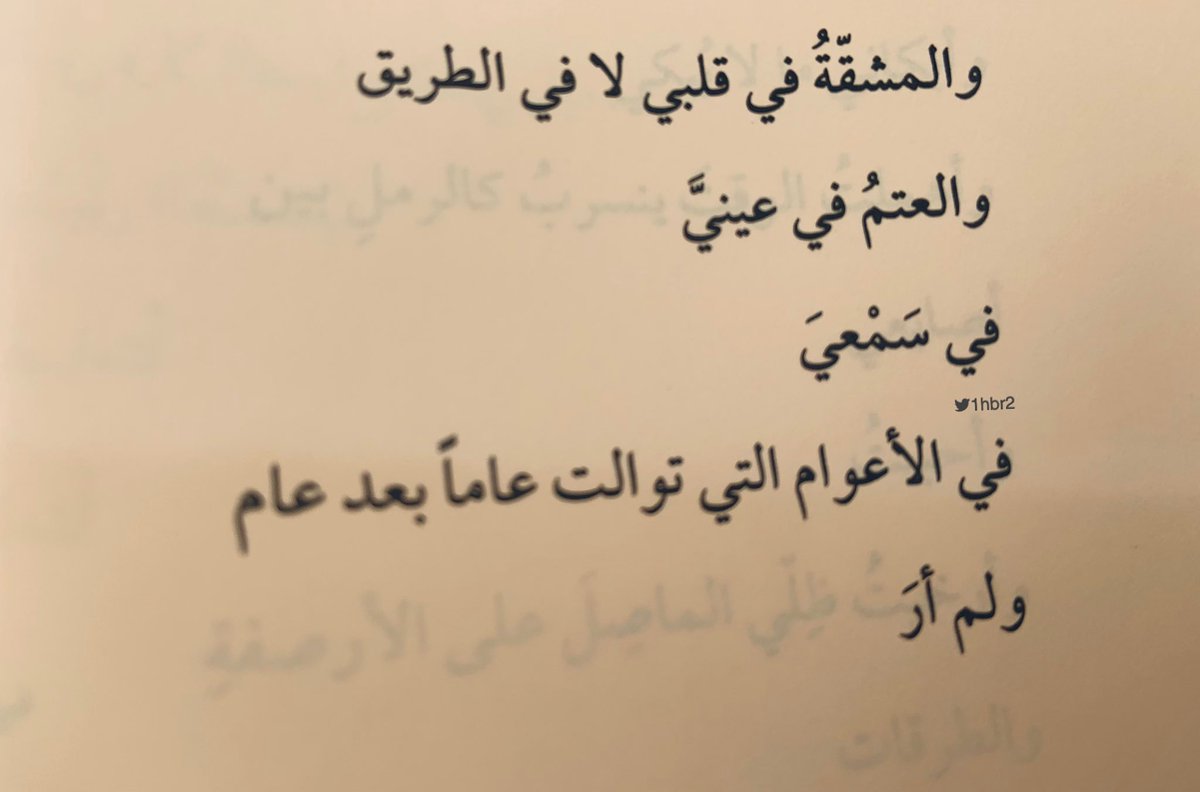 والمشقّةُ في قلبي لا في الطريق
والعتمُ في عينيَّ
في سَمْعيَ
1hbr2
في الأعوام التي توالت عاماً بعد عام
ولم أرَ